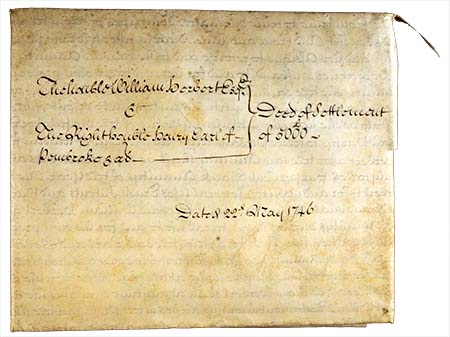 The honble William Herbert Esqr.
&
The Right honble Henry Earl of
Pembroke & als
Deed of Settlement
of 5000
Dated 22d. May 1746